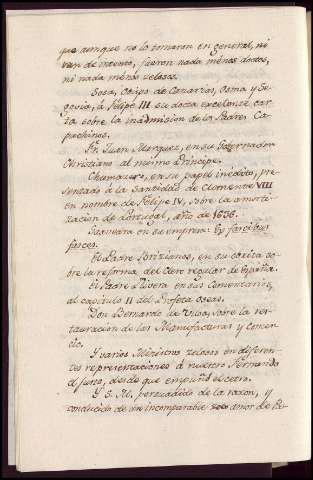 que aunque no lo tomaron en general, ni
van de intento, fueron nada ménos doctos,
ni nada ménos zelosos.
Sosa, Obipo de Canarias, Osma y Se-
govia, á Felipe III su docta excelente car-
ta sobre la inadmision de los Padres Ca-
puchinos.
Fr. Juan Marquez, en su Gobernador
Christiano al mismo Principe.
Chumazero, en su papel inédito, pre-
sentado á la Santidad de Clemente VIII
en nombre de Felipe IV, sobre la amorti-
zacion de Portugal, año de 1636.
Saavedra en su empresa: Ex fascibus
fasces.
El Padre Brizianos, en su cartita so-
bre la reforma del Clero regular de España.
El Padre Rivera en sus Comentarios,
al capitulo II del Profeta Oseas.
Don Bernardo de Ulloa, sobre la res-
tauracion de las Manufacturas y Comer-
cio.
Y varios Ministros zelosos en diferen-
tes representaciones á nuestro Fernando
el justo, desde que empuñó el cetro.
Y S. M. persuadido de la razon, y
conducido de un incomparable amor de Re-